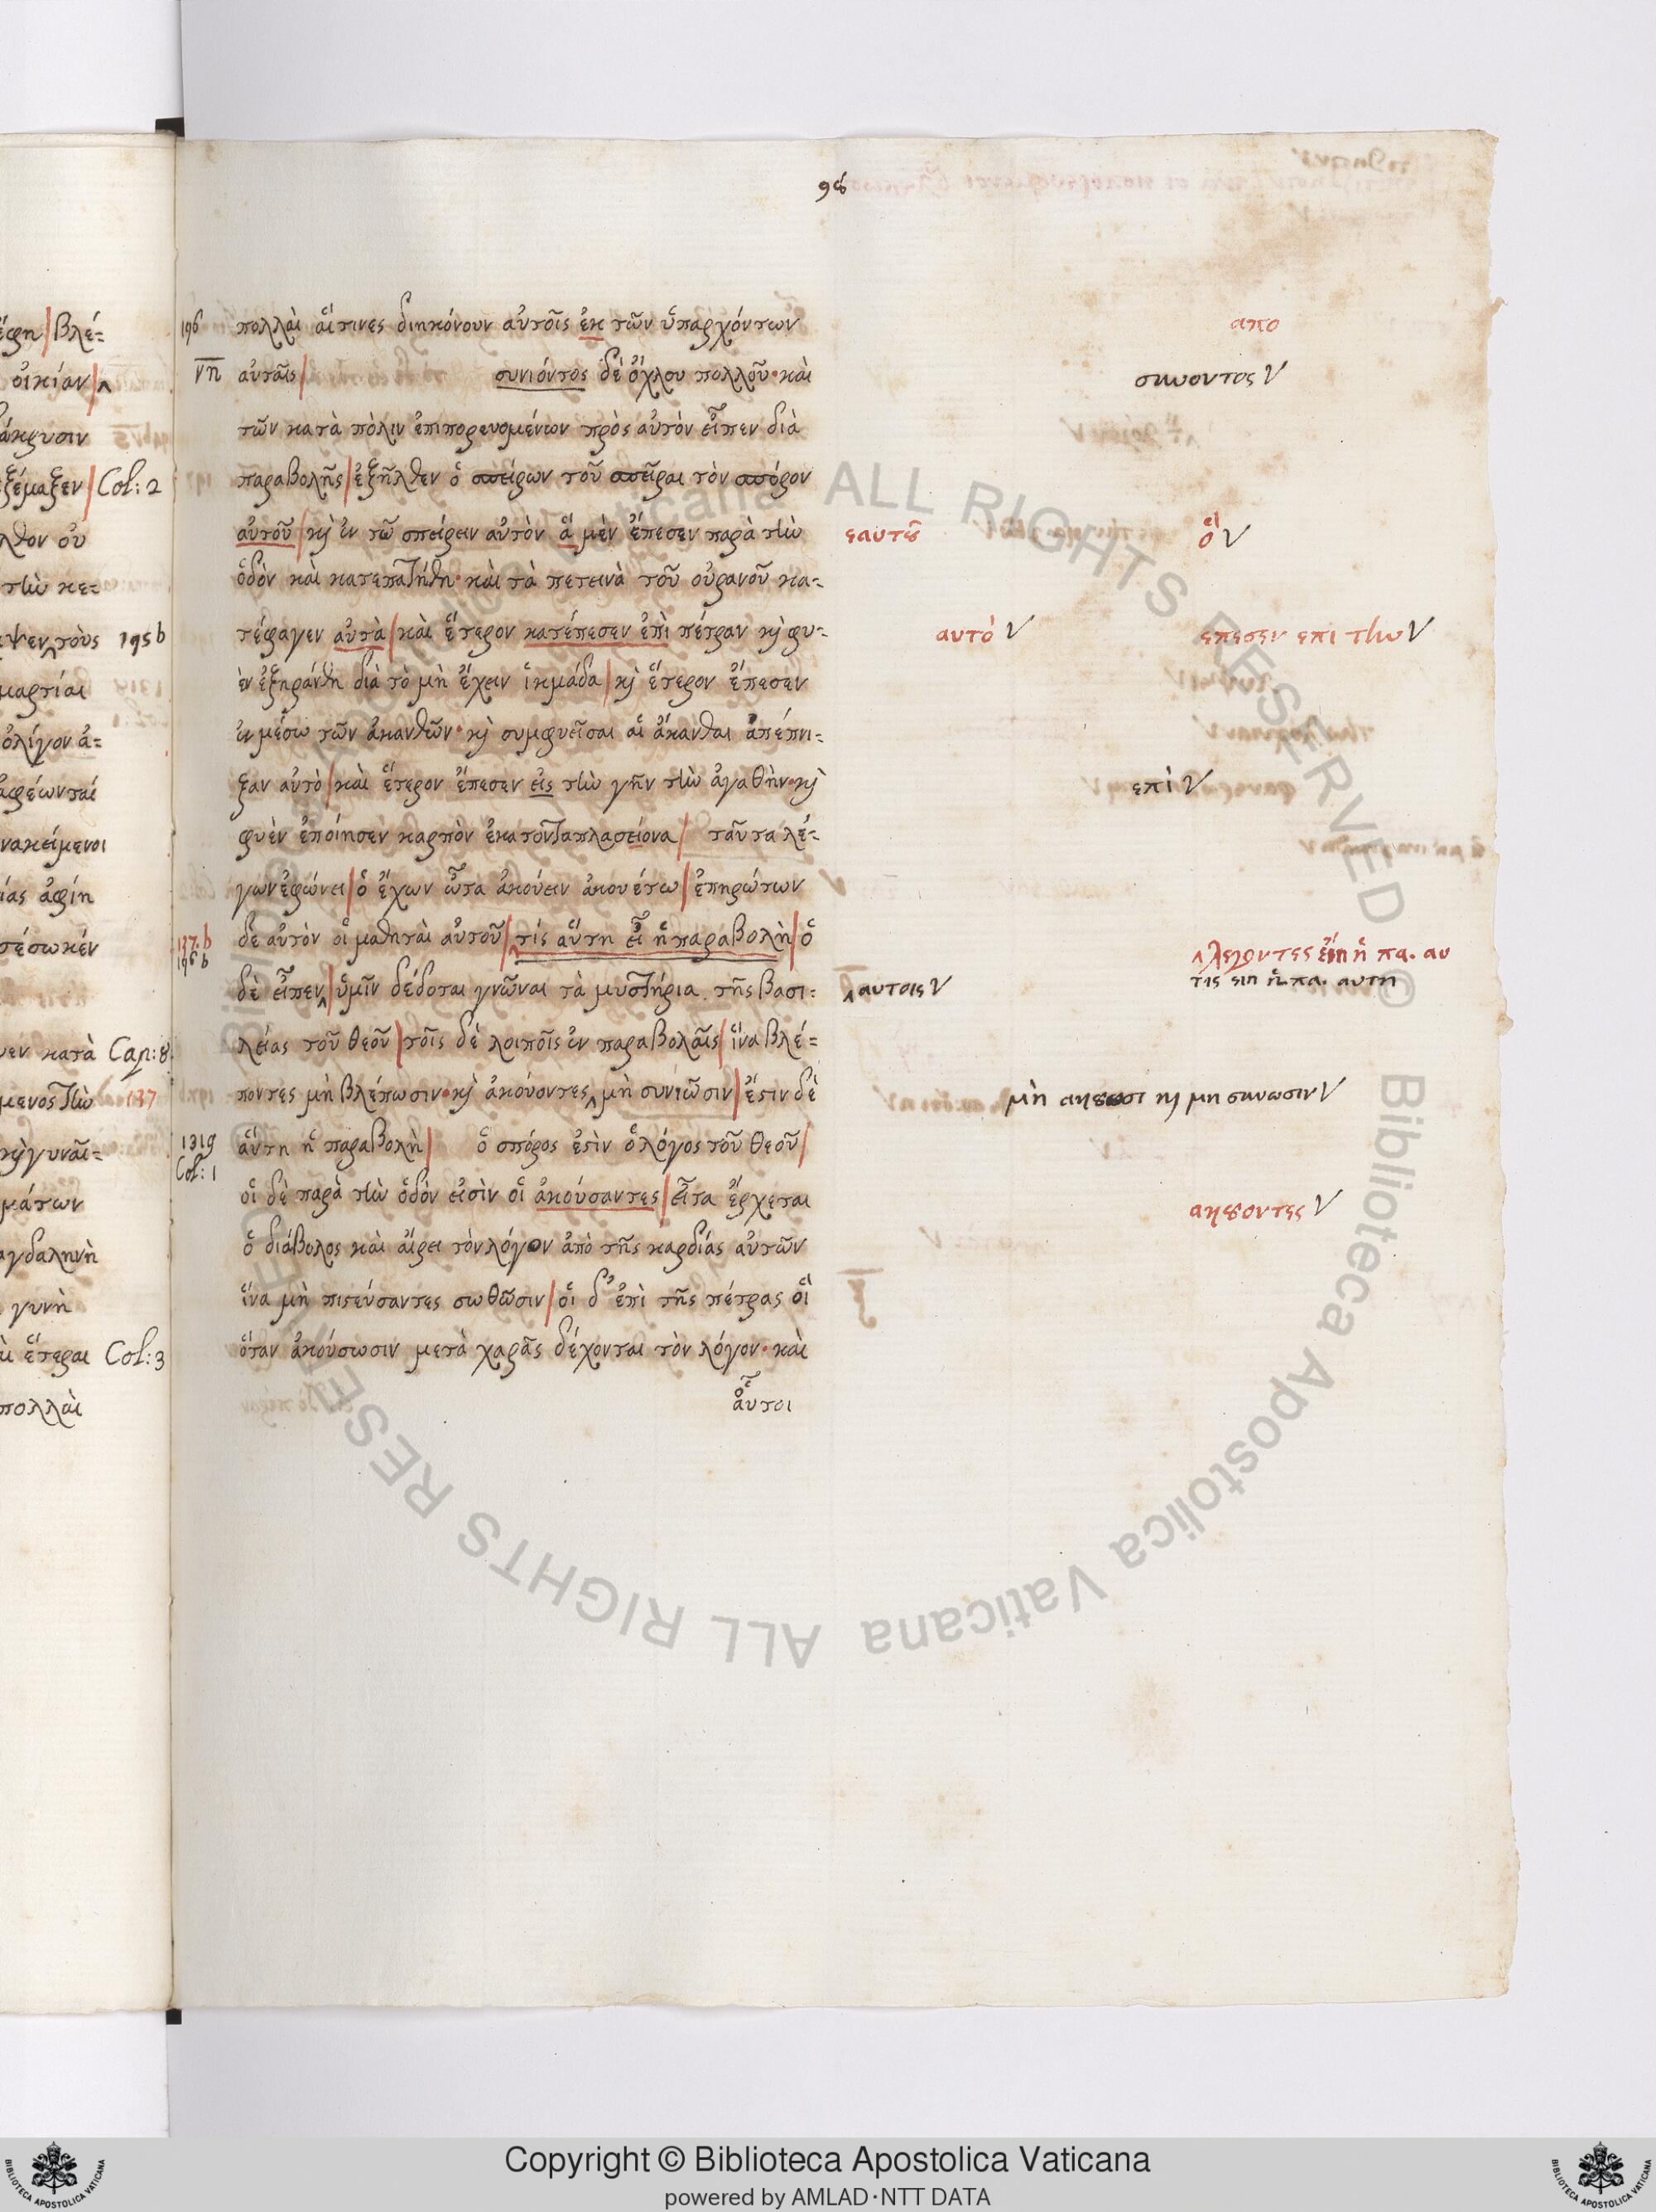 98
έφη βλέ-
οἰκίαν
άκρυσιν
ξέμαξεν Col: 2
λθον οὐ
τὴν κε-
ψεν τοὺς 195b
μαρτίαι
ὀλίγον ἀ-
ἀφέωνταί
νακείμενοι
ίας ἀφίη
σέσωκέν
κατὰ Cap: 8
μενος τὴν 137
κὶ γυναῖ-
μάτων
αγδαληνὴ
γυνὴ
ἕτεραι Col: 3
πολλαὶ
196 πολλαὶ αἵτινες διηκόνουν αὐτοῖς ἐκ τῶν ὑπαρχόντων απο
νη αὐταῖς συνιόντος δὲ ὄχλου πολλοῦ· καὶ συνοντος V
τῶν κατὰ πόλιν ἐπιπορευομένων πρὸς αὐτὸν εἶπεν διὰ
παραβολῆς ἐξῆλθεν ὁ σπείρων τοῦ σπεῖραι τὸν σπόρον
αὐτοῦ κὶ ἐν τῷ σπείρειν αὐτὸν ἃ μὲν ἔπεσεν παρὰ τὴν εαυτȣ ὃ V
ὁδὸν καὶ κατεπατήθη· καὶ τὰ πετεινὰ τοῦ οὐρανοῦ κα-
τέφαγεν αὐτὰ καὶ ἕτερον κατέπεσεν ἐπὶ πέτραν κὶ φυ- αυτό V επεσεν επι την V
ὲν ἐξηράνθη διὰ τὸ μὴ ἔχειν ἰκμάδα κὶ ἕτερον ἔπεσεν
ἐν μέσω τῶν ἀκανθῶν· κὶ συμφυεῖσαι αἱ ἄκανθαι ἀπέπνι-
ξαν αὐτὸ καὶ ἕτερον ἔπεσεν εἰς τὴν γῆν τὴν ἀγαθὴν· κὶ επὶ V
φυὲν ἐποίησεν καρπὸν ἑκατονταπλασείονα ταῦτα λέ-
γων ἐφώνει ὁ ἔχων ὦτα ἀκούειν ἀκουέτω ἐπηρώτων
137.b δὲ αὐτὸν οἱ μαθηταὶ αὐτοῦ τίς αὕτη εἴη ἡ παραβολὴ ὁ λεγοντες εἴη ἡ πα. αυ
196b δὲ εἶπεν ὑμῖν δέδοται γνῶναι τὰ μυστήρια τῆς βασι- αυτοις V τις ειη ἡ πα. αυτη
λείας τοῦ θεοῦ τοῖς δὲ λοιποῖς ἐν παραβολαῖς ἵνα βλέ-
ποντες μὴ βλέπωσιν· κὶ ἀκούοντες μὴ συνιῶσιν ἔστιν δὲ μὴ ακȣωσι κὶ μη συνωσιν V
1319 αὕτη ἡ παραβολὴ ὁ σπόρος ἐστὶν ὁ λόγος τοῦ θεοῦ
Col: 1 οἱ δὲ παρὰ τὴν ὁδὸν εἰσὶν οἱ ἀκούσαντες εἶτα ἔρχεται ακȣοντες V
ὁ διάβολος καὶ αἴρει τὸν λόγον ἀπὸ τῆς καρδίας αὐτῶν
ἵνα μὴ πιστεύσαντες σωθῶσιν οἱ δ' ἐπὶ τῆς πέτρας οἳ
ὅταν ἀκούσωσιν μετὰ χαρᾶς δέχονται τὸν λόγον· καὶ
οὗτοι
ALL RIGHTS RESERVED © Biblioteca Apostolica Vaticana
Copyright © Biblioteca Apostolica Vaticana
powered by AMLAD·NTT DATA
BIBLIOTECA APOSTOLICA VATICANA
BIBLIOTECA APOSTOLICA VATICANA